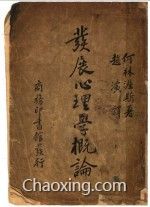 何林渥斯著
趙演譯
發展心理學概論
商務印書館發行
Chaoxing.com